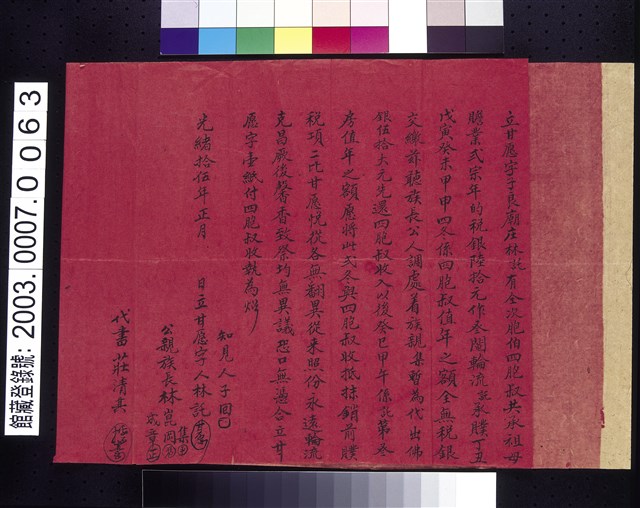 立甘愿字子良廟庄林託有仝次胞伯四胞叔共承祖母
贍業弍宗年的税銀陸拾元作叁鬮輪流至承贌丁丑
戊寅癸未甲申四冬係四胞叔值年之額全無税銀
交繳辞聽族長公人調處着族親集暫為代出佛
銀伍拾大元先還四胞叔收入以後癸巳甲午係託第叁
房值年之額愿將此弍冬與四胞叔收抵抹銷前贌
税項二比甘愿悦從各無翻異從來照份永遠輪流
克昌厥後馨香致祭均無異議恐口無憑合立甘
愿字壹紙付四胞叔收執為炤
光緒拾伍年正月 日立甘愿字人林託
知見人子回
公親族長林
集
成章
代書莊清其
館藏登錄號：2003.0007.0063